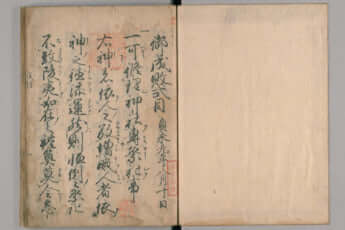 御成敗式目 貞永元年八月十日
一可修理神社専祭祀事
右神者依人之敬増威人者依
神之徳添運然則恒例之祭祀
不致陵夷如在之礼奠莫令怠